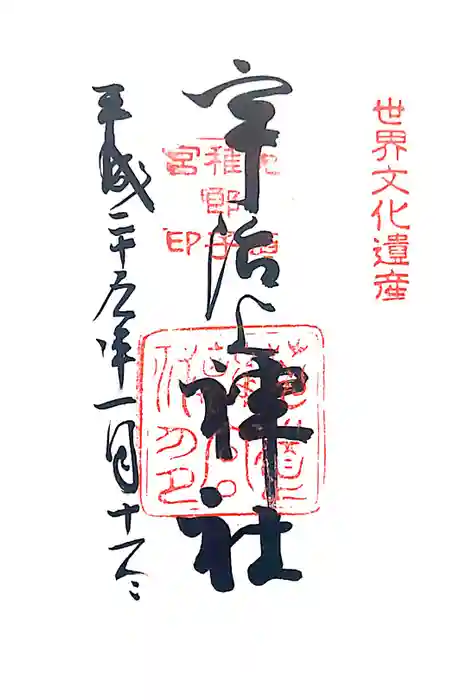 世界文化遺産
宇治上神社
稚郎子
宮印
平成二十五年一月十六日